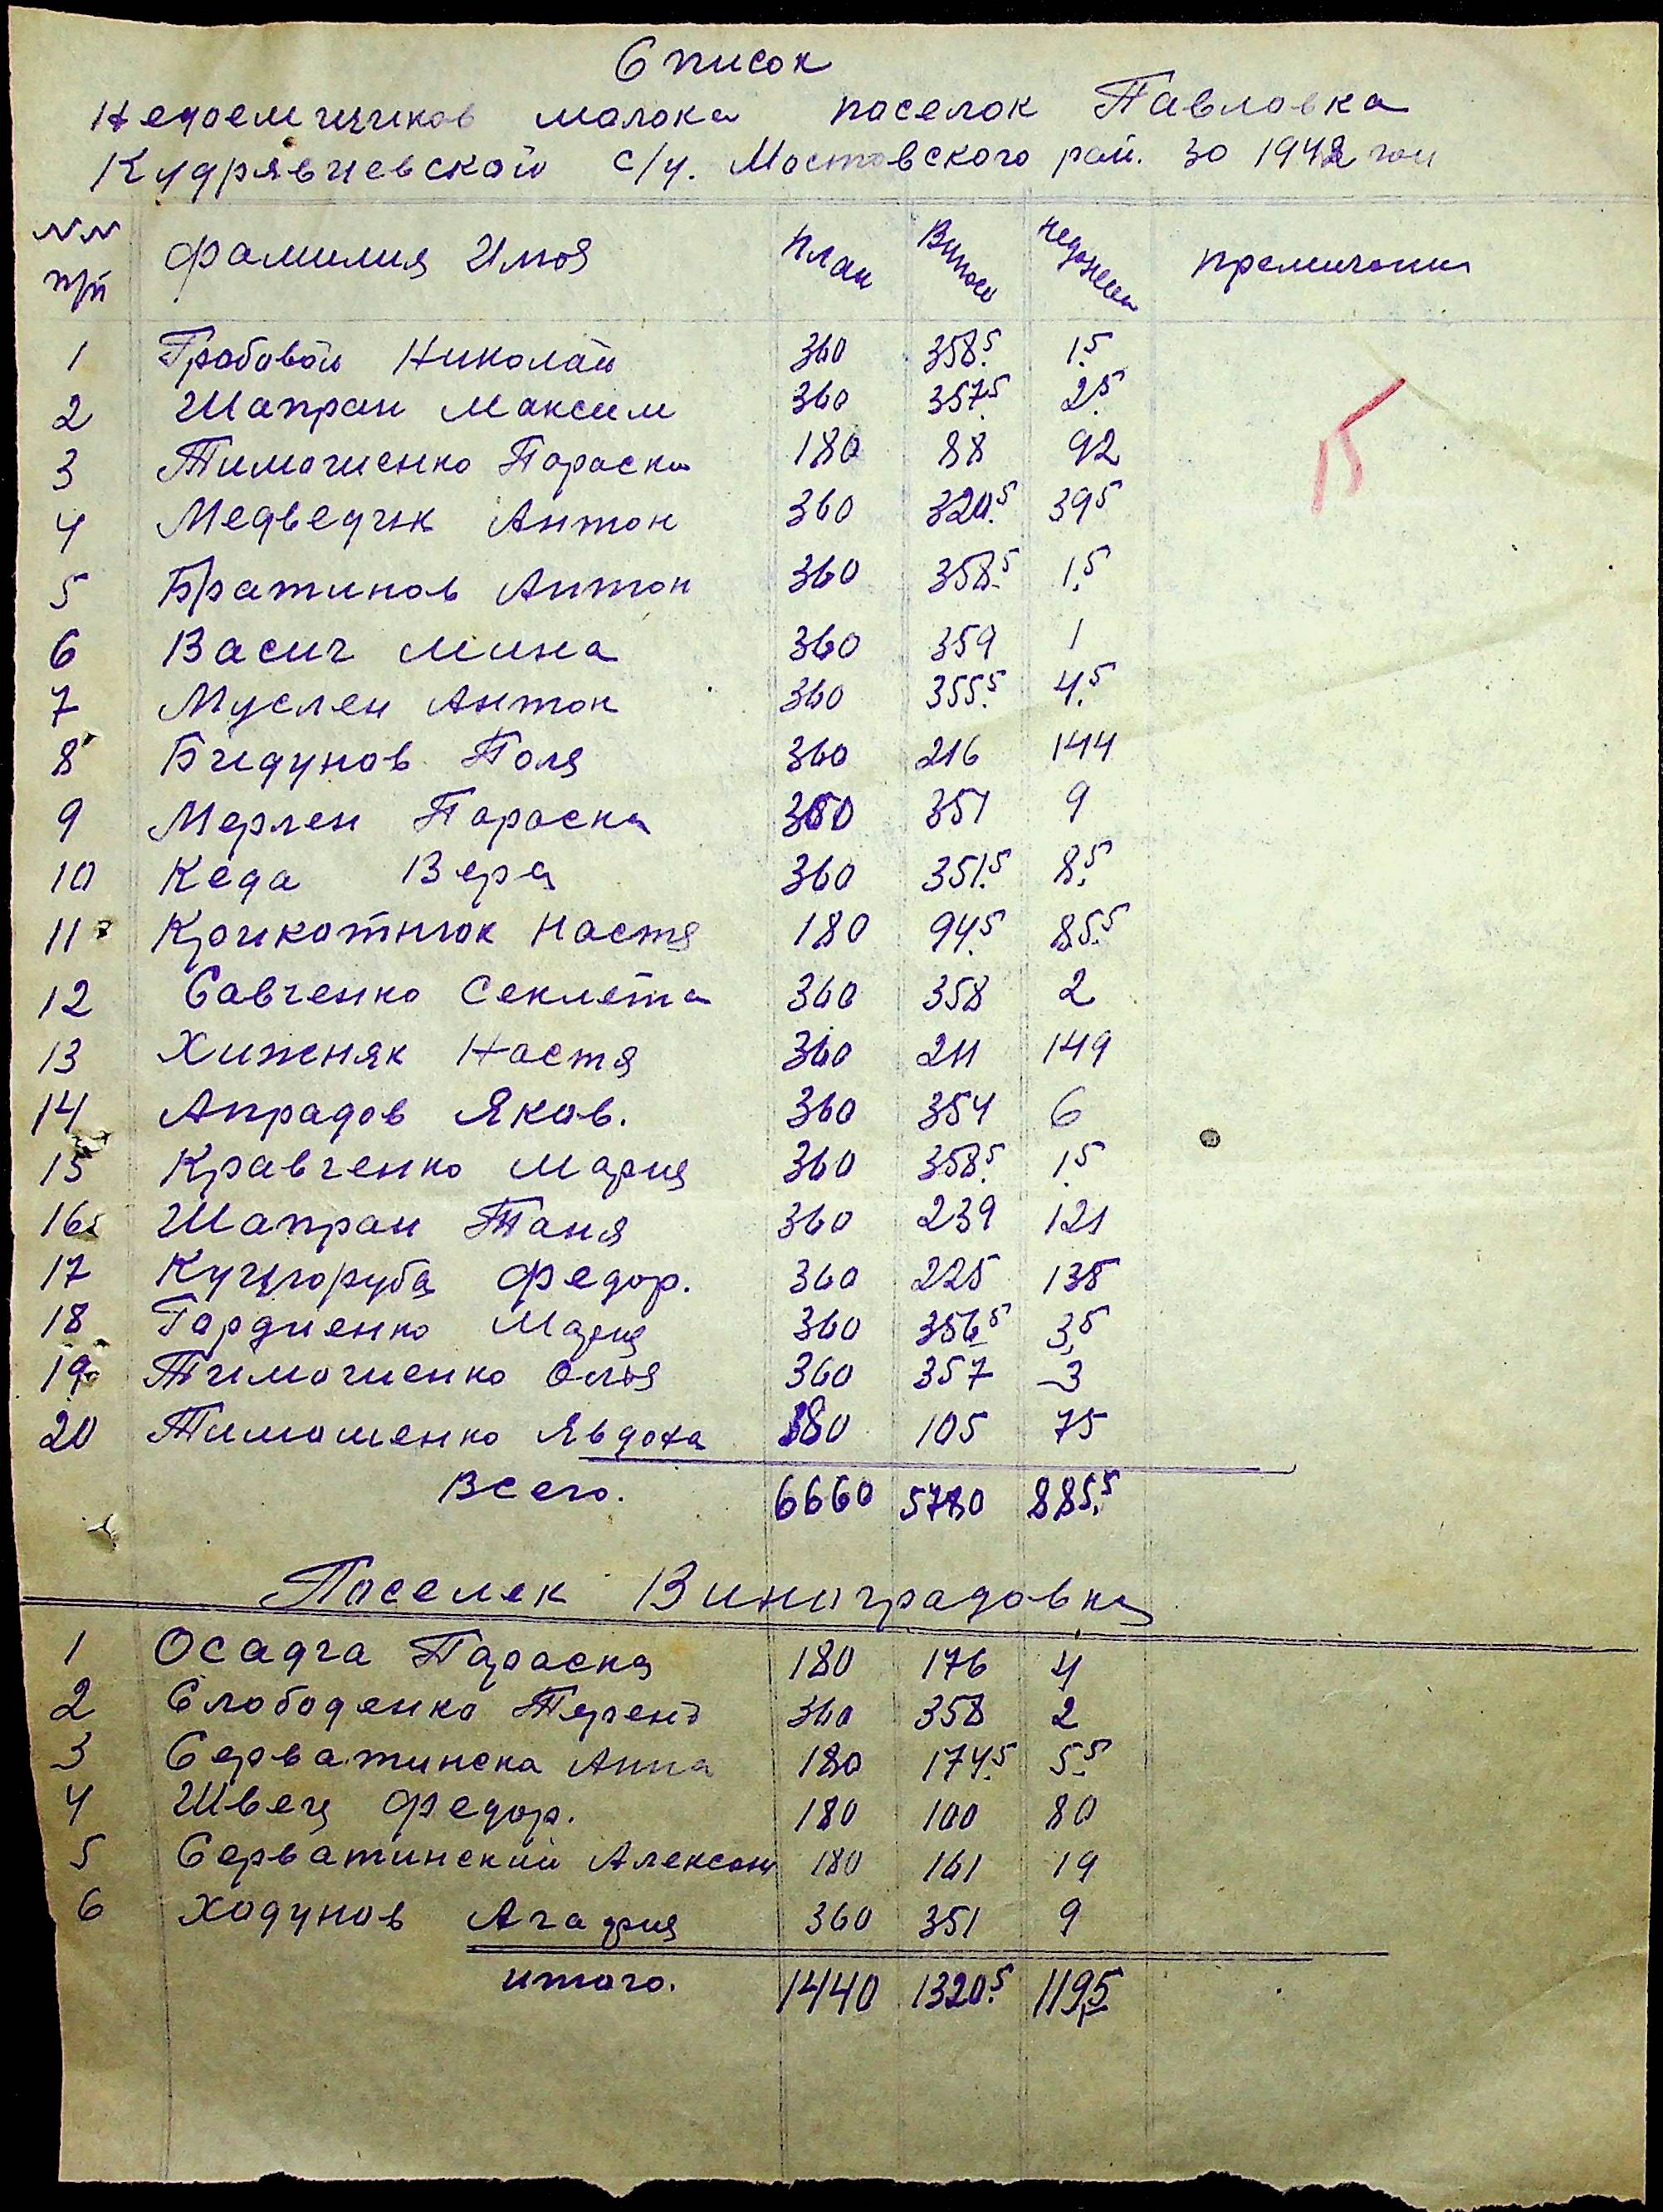 Список
Недоемщиков молока поселок Павловка
Кудрявчевской с/у. Мостовского рай. за 1942 год
NN п/п Фамилия Имя План Выпол недоимка премичания
1 Грабовой Николай 360 358.5 1.5
2 Шапран Максим 360 357.5 2.5
3 Тимошенко Параска 180 88 92
4 Медведчк Антон 360 320.5 39.5
5 Братинов Антон 360 358.5 1.5
6 Васич Мина 360 359 1
7 Муслен Антон 360 355.5 4.5
8 Бчедунов Поля 360 216 144
9 Мерлен Параска 360 351 9
10 Кеда Вера 360 351.5 8.5
11 Настя 180 94.5 85.5
12 Савченко Секлета 360 358 2
13 Хижняк Настя 360 211 149
14 Апрадов Яков. 360 354 6
15 Кравченко Мария 360 358.5 1.5
16 Шапран Таня 360 239 121
17 Федор. 360 225 135
18 Гордиенко Мария 360 356.5 3.5
19 Тимошенко Оля 360 357 3
20 Тимошенко Явдоха 180 105 75
Всего. 6660 5780 885.5
Поселек Виноградовка
1 Осадча Параска 180 176 4
2 Слободенко 360 358 2
3 Серватинска Анна 180 174.5 5.5
4 Швец Федор. 180 100 80
5 Серватинский Алексан 180 161 19
6 Ходунов Агафия 360 351 9
итого. 1440 1320.5 119.5
15